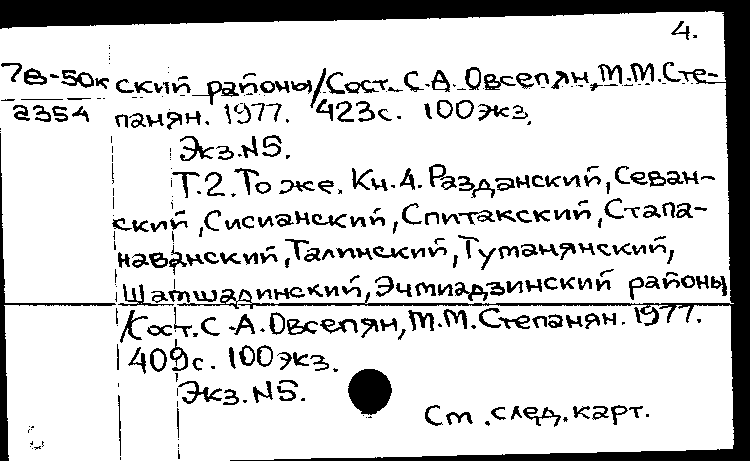 4.
78-50к ский районы/Сост. С.А. Овсепян, М.М.Сте-
2354 панян. 1977. 423с. 100экз.
Экз.№5.
Т.2. То же. Кн.4. Разданский, Севан-
ский, Сисианский, Спитакский, Стапа-
наванский, Талинский, Туманянский,
Шамшадинский, Эчмиадзинский районы
/Сост. С.А. Овсепян, М.М. Степанян. 1977.
409с. 100экз.
Экз.№5.
См. след. карт.